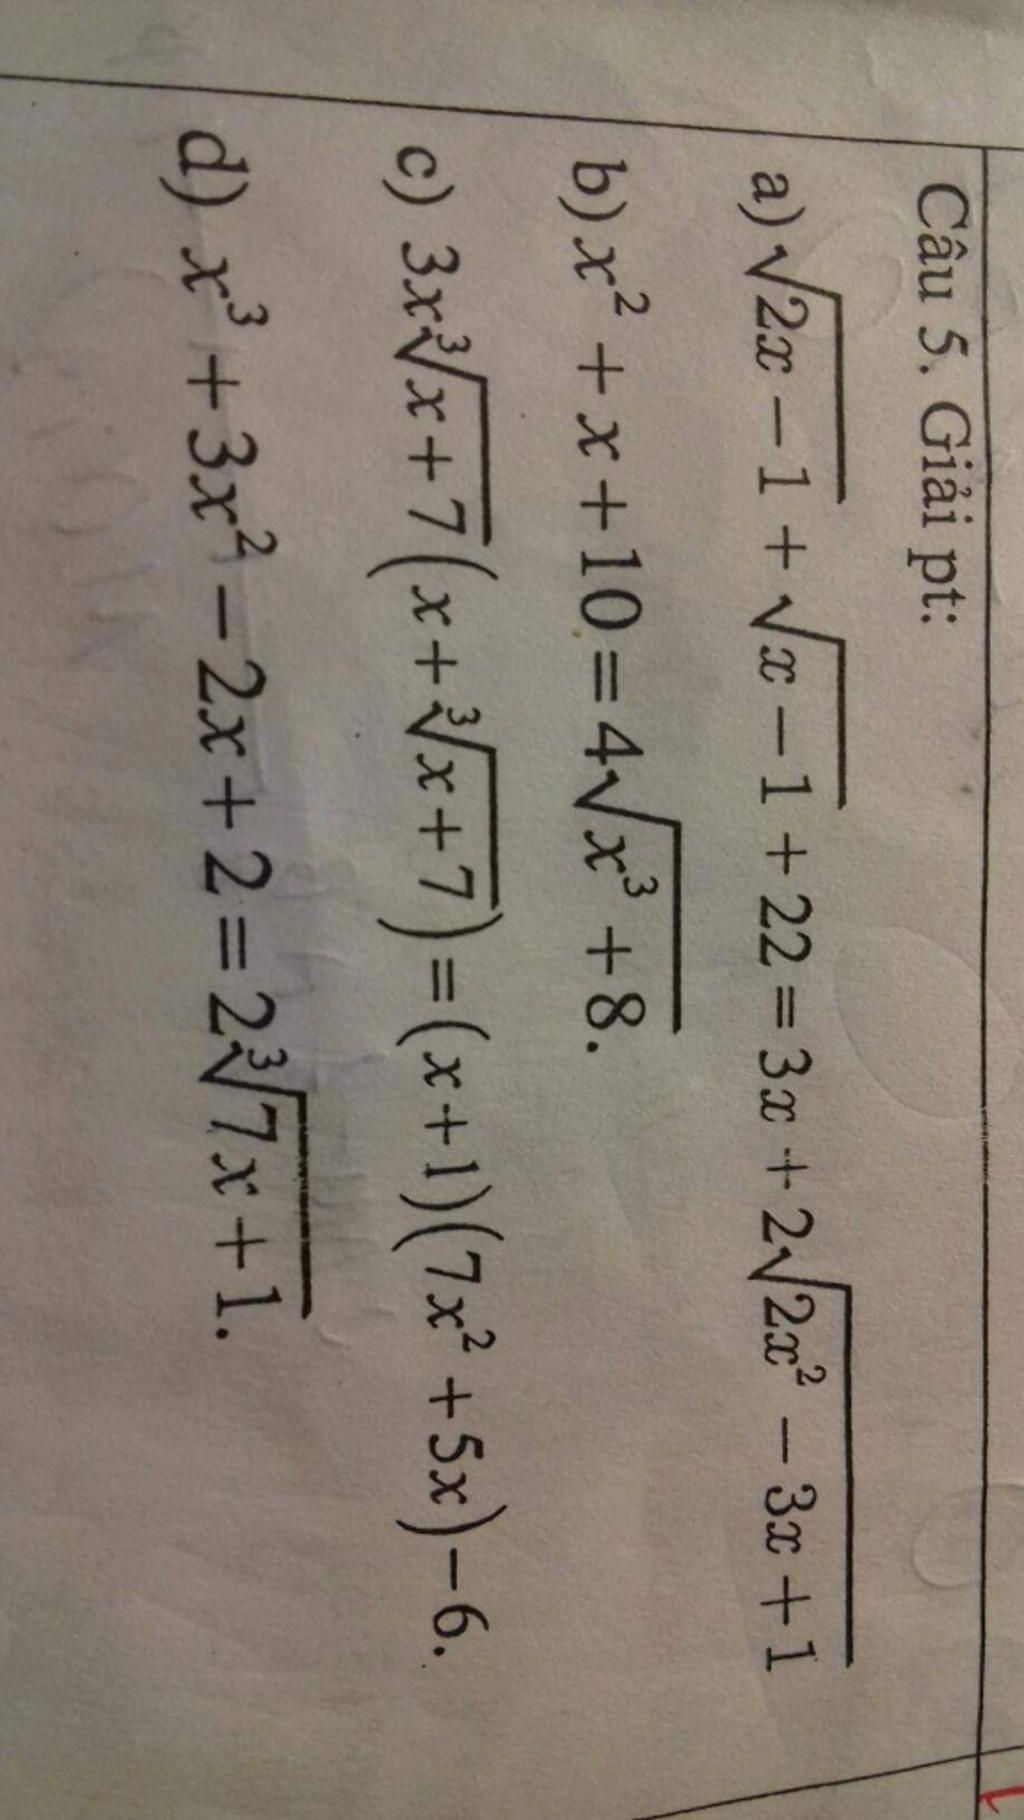 Câu 5. Giải pt:
a) √(2x − 1) + √(x − 1) + 22 = 3x + 2√(2x² − 3x + 1)
b) x² + x + 10 = 4√(x³ + 8).
c) 3x∛(x + 7)(x + ∛(x + 7)) = (x + 1)(7x² + 5x) − 6.
d) x³ + 3x² − 2x + 2 = 2∛(7x + 1).